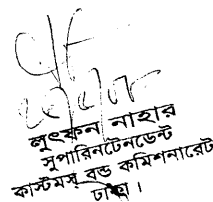 লুৎফন নাহার
সুপারিনটেনডেন্ট
কাস্টমস্ বন্ড কমিশনারেট
ঢাকা।